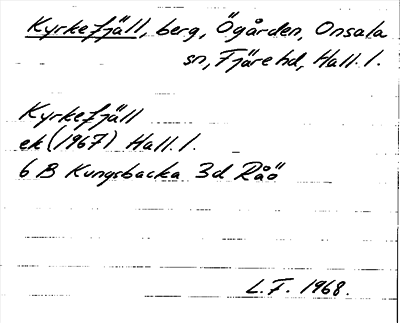 Kyrkefjäll, berg, Ögården, Onsala
sn, Fjäre hd, Hall. l.
Kyrkefjäll
ek (1967) Hall. l.
6 B Kungsbacka 3d Råö
L.F. 1968.